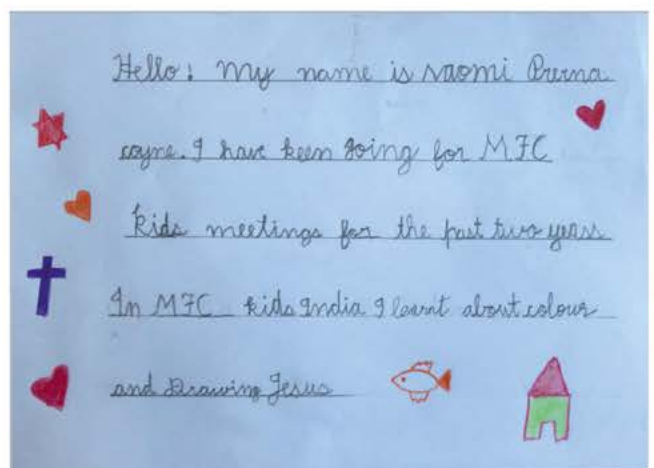 Hello: My name is naomi Prerna
coyne. I have keen going for MFC
kids meetings for the past two years
In MFC kids India I learnt about colour
and Drawing Jesus